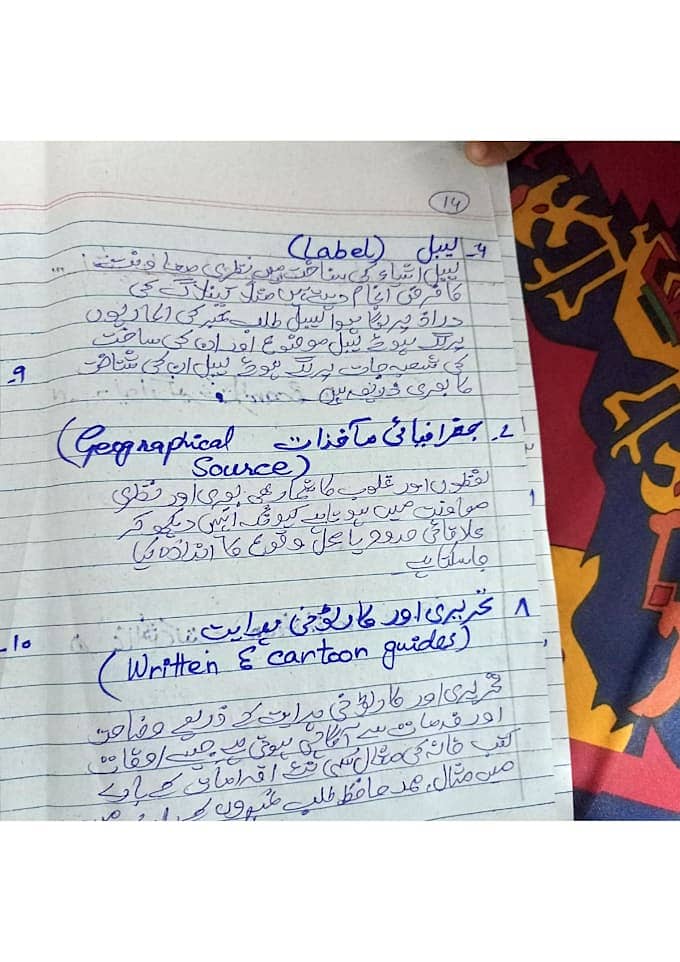 14
لیبل (Label)
لیبل اشیاء کی شناخت میں نظری معاونت
کا فرض انجام دیتے ہیں مثلاً کیٹلاگ کی
دراز پر لگا ہوا لیبل طلب کی الماریوں
پر لگے ہوئے لیبل موضوع اور ان کی ساخت
کی شعبہ جات پر لگے ہوئے لیبل ان کی شناخت
کا بصری ذریعہ ہیں
9-
جغرافیائی مآخذات (Geographical
Source)
نقشوں اور کا شمار بھی اور نظری
معاونت میں ہوتا ہے کیونکہ انہیں دیکھ کر
علاقائی حدود یا محل وقوع کا اندازہ کیا
جا سکتا ہے
۸ تحریری اور کارٹونی ہدایت
10-
(Written & cartoon guides)
تحریری اور کارٹونی ہدایت کے ذریعے وضاحت
اور خدمات سے آگاہی ہوتی ہے جیسے اوقات
کتب خانہ کی مثال کسی نئے کے بارے
میں مثال، طلب